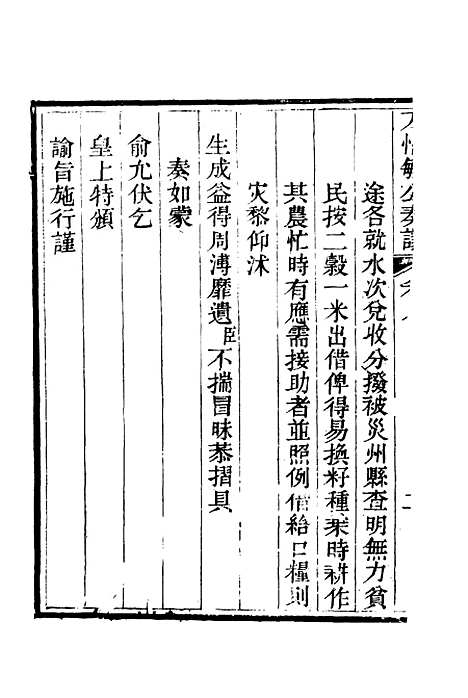 途各就水次兌收分撥被災州縣查明無力貧
民按二穀一米出借俾得易換籽種乘時耕作
其農忙時有應需接助者並照例借給口糧則
災黎仰沐
生成益得周溥靡遺臣不揣冒昧恭摺具
奏如蒙
俞允伏乞
皇上特頒
諭旨施行謹